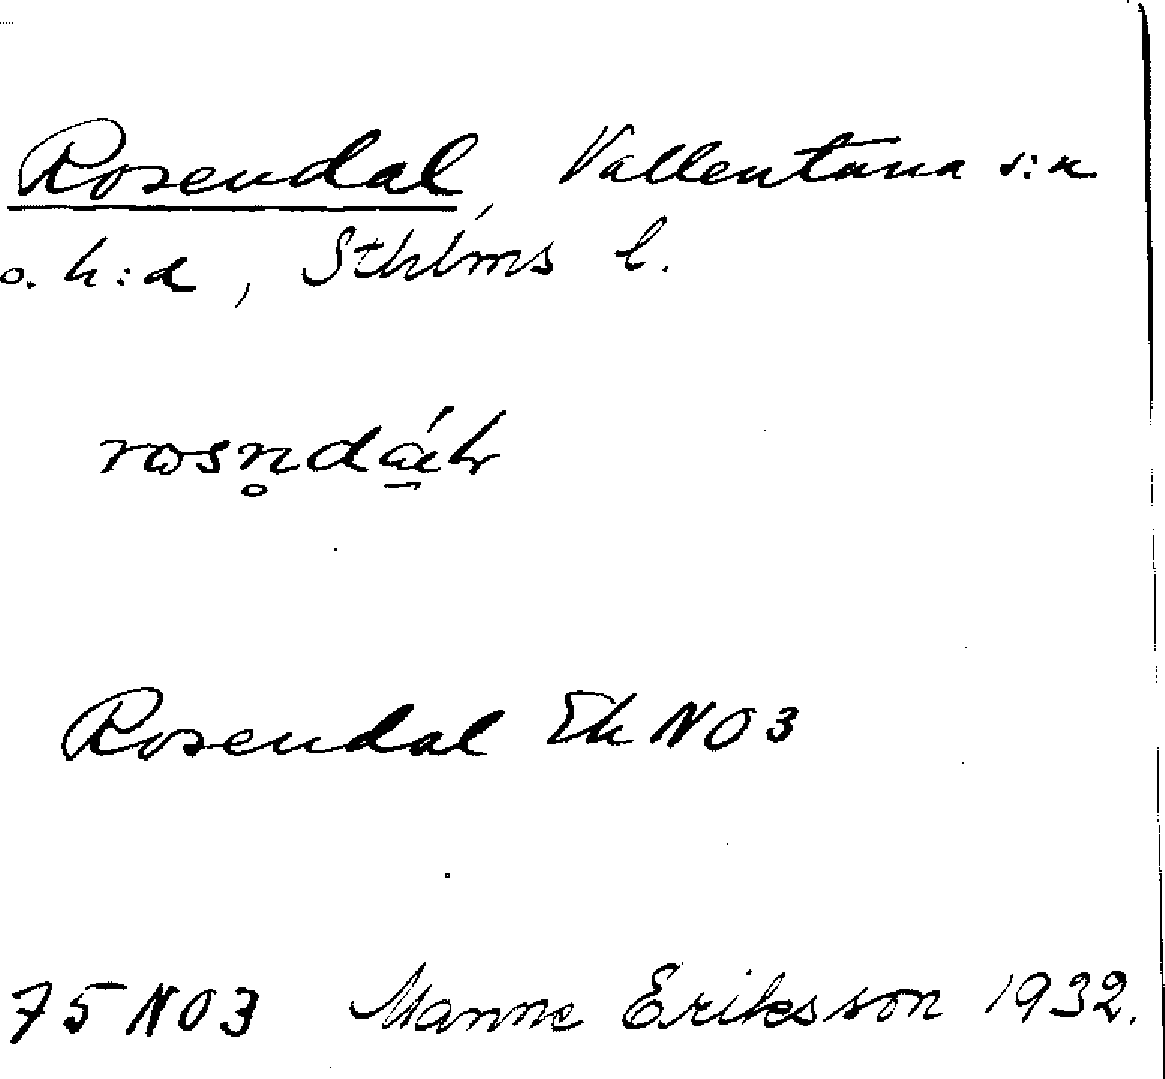 Rosendal, Vallentuna s:n
o. h:d, Sthlms l.
Rosendal Ek NO3
75 NO3 Manne Eriksson 1932.